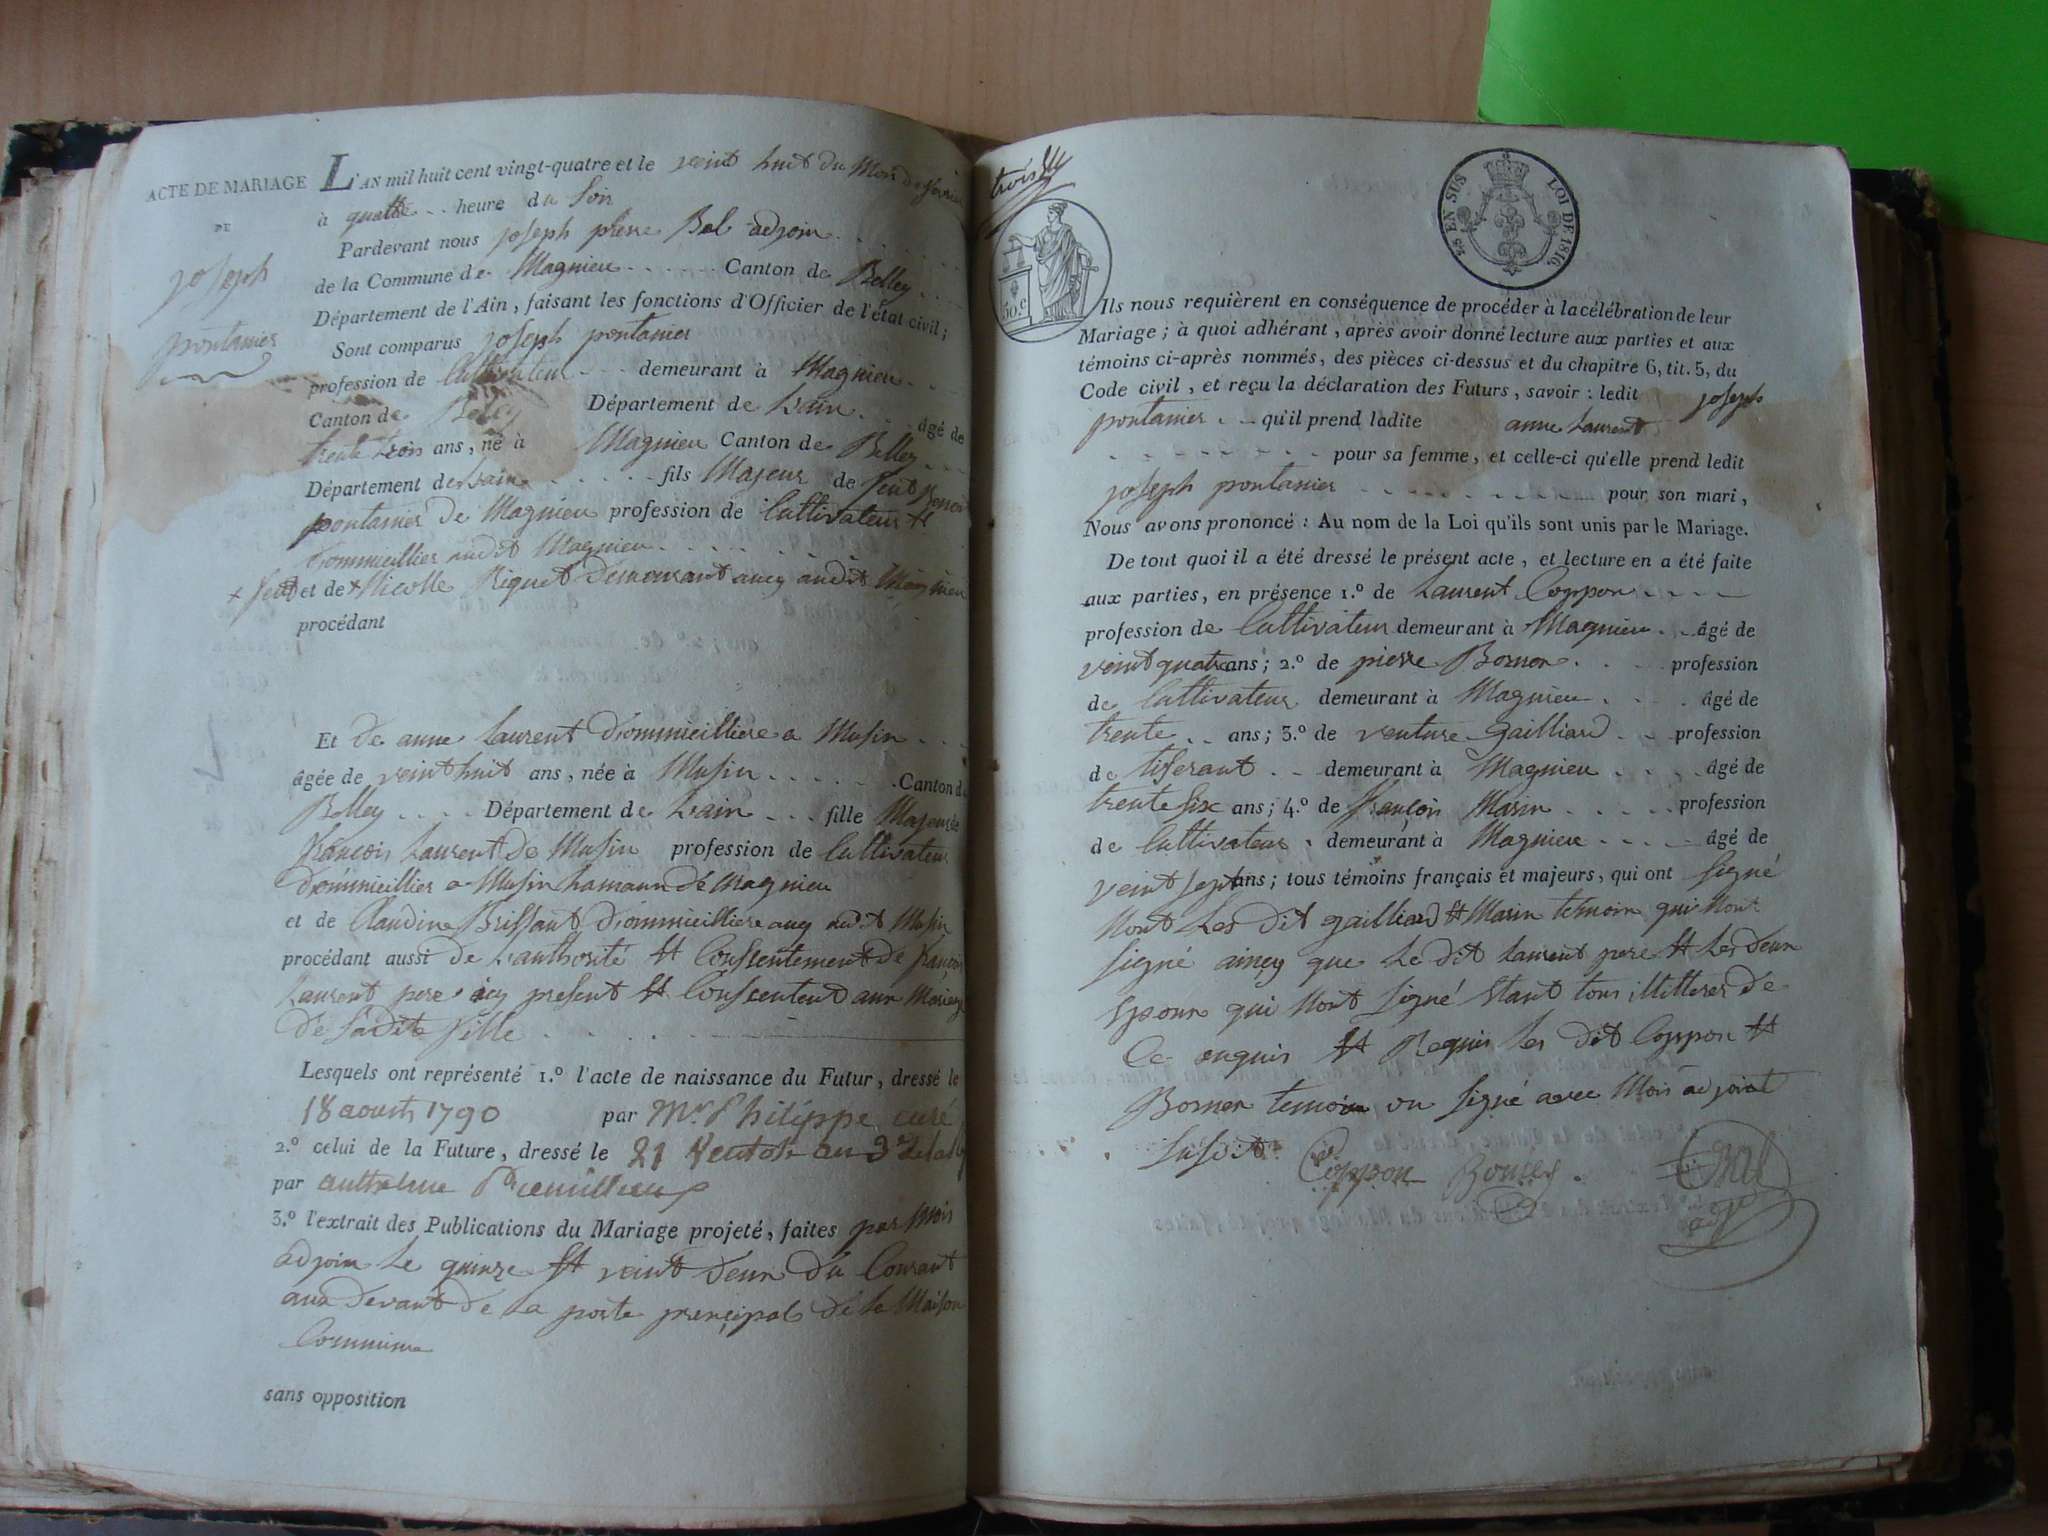 ACTE DE MARIAGE
DE
joseph
pontanier
L'AN mil huit cent vingt-quatre et le veint huit du Mois de fevrier
à quattre heure du Soir
Pardevant nous joseph pierre Bal adjoin
de la Commune de Magnieu Canton de Belley
Département de l'Ain, faisant les fonctions d'Officier de l'état civil;
Sont comparus joseph pontanier
profession de Cultivateur demeurant à Magnieu
Canton de Belley Département de Lain âgé de
trente trois ans, né à Magnieu Canton de Belley
Département de Lain fils Majeur de feut
pontanier de Magnieu profession de Cultivateur
Dommicillier audit Magnieu
+ feut et de + Nicolle Riquet Demeurant aucy audit Magnieu
procédant
Et de anne Laurent Dommicilliere a Musin
âgée de veint huit ans, née à Musin Canton de
Belley Département de Lain fille Majeure
françois Laurent de Musin profession de Cultivateur
Dommicillier a Musin hamaun de Magnieu
et de Claudine Brissaut Dommicilliere aucy audit Musin
procédant aussi de Lauthorité et Consentement de francois
Laurent pere icy present et Consentent aux Mariage
de Sadite fille
Lesquels ont représenté 1.º l'acte de naissance du Futur, dressé le
18 aoust 1790 par Mr. Philippe curé
2.º celui de la Future, dressé le 21 Ventose an 3
par anthelme
3.º l'extrait des Publications du Mariage projeté, faites par Mois
adjoin Le quinze et veint deux du Courant
aux devant de La porte principal de la Maison
Commune
sans opposition
trois
50.c
LOI DE 1816
EN SUS
Ils nous requièrent en conséquence de procéder à la célébration de leur
Mariage; à quoi adhérant, après avoir donné lecture aux parties et aux
témoins ci-après nommés, des pièces ci-dessus et du chapitre 6, tit. 5, du
Code civil, et reçu la déclaration des Futurs, savoir: ledit joseph
pontanier qu'il prend ladite anne Laurent
pour sa femme, et celle-ci qu'elle prend ledit
joseph pontanier pour son mari,
Nous avons prononcé: Au nom de la Loi qu'ils sont unis par le Mariage.
De tout quoi il a été dressé le présent acte, et lecture en a été faite
aux parties, en présence 1.º de Laurent Coppon
profession de Cultivateur demeurant à Magnieu âgé de
veint quatre ans; 2.º de pierre Borner profession
de Cultivateur demeurant à Magnieu âgé de
trente ans; 3.º de venture gailliard profession
de tiserant demeurant à Magnieu âgé de
trente six ans; 4.º de françois Marin profession
de Cultivateur demeurant à Magnieu âgé de
veint sept ans; tous témoins français et majeurs, qui ont signé
Nont Les dit gailliard et Marin temoin qui Nont
signé aincy que Le dit Laurent pere et Les deux
Epoux qui Nont signé Etant tous illitterer de
Ce enquis et Requis Les dit Coppon et
Borner temoin on signé avec Mois adjoint
Susdit
Coppon Borner Bal
adj